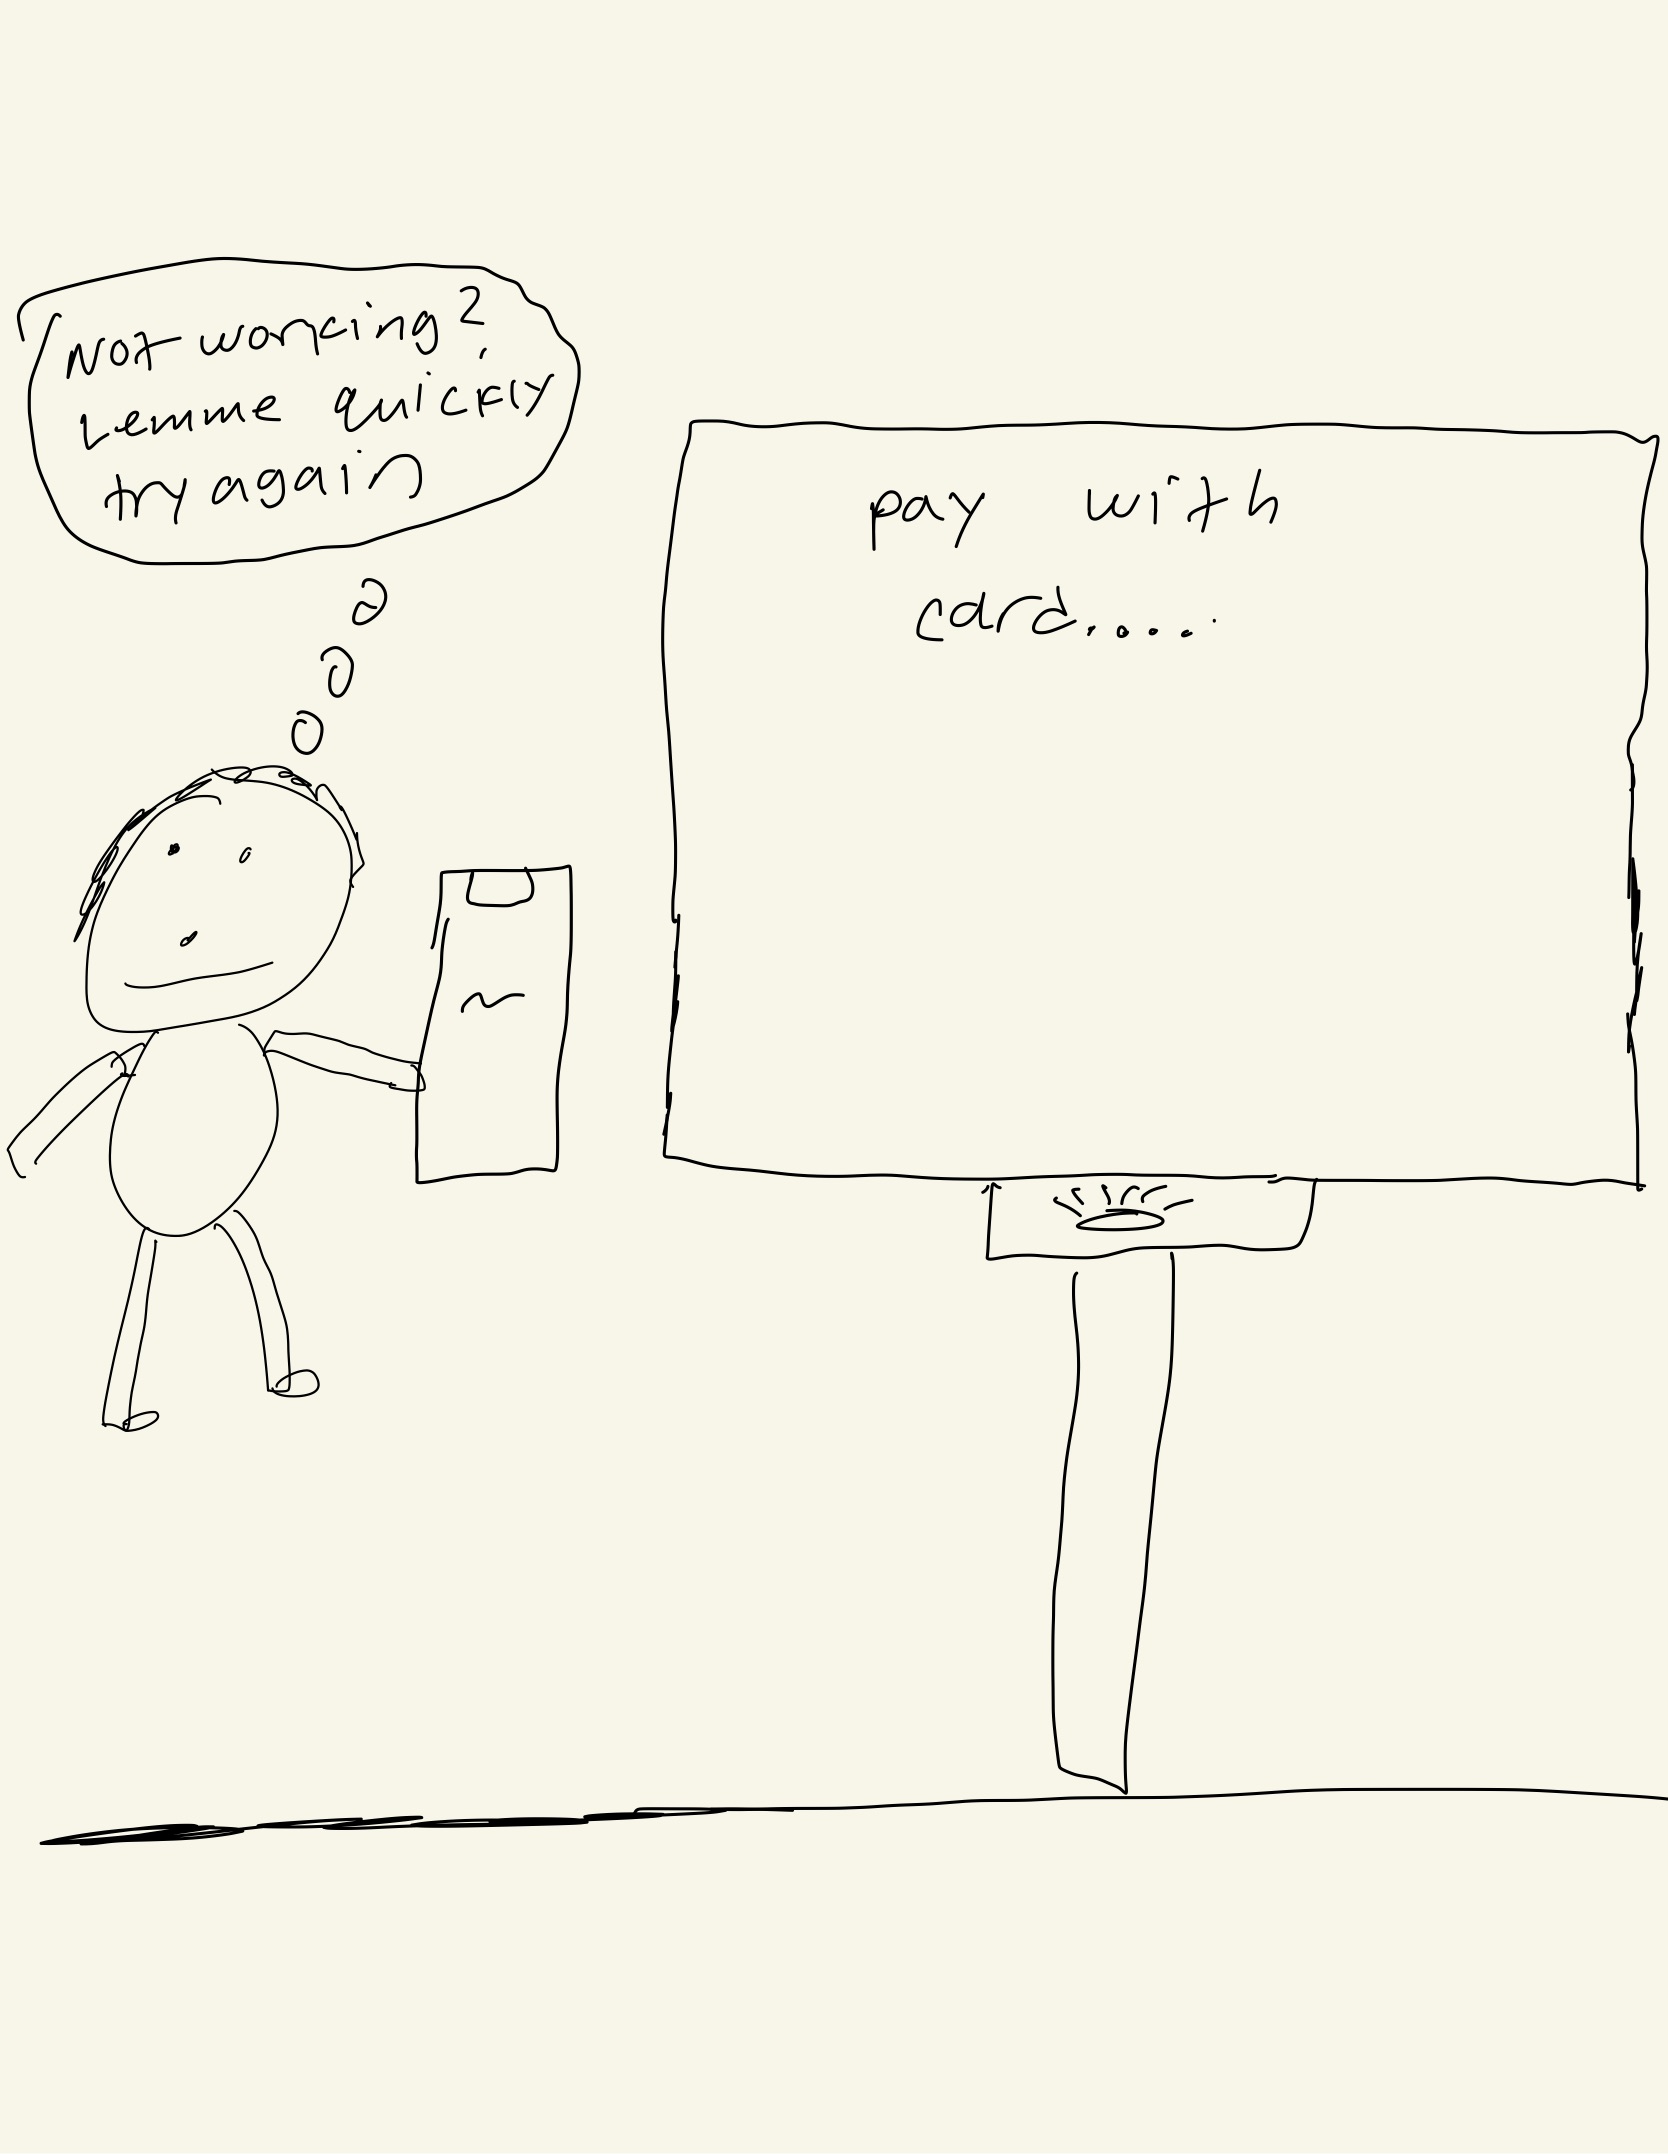 Not working?
Lemme quickly
try again
pay with
card.....